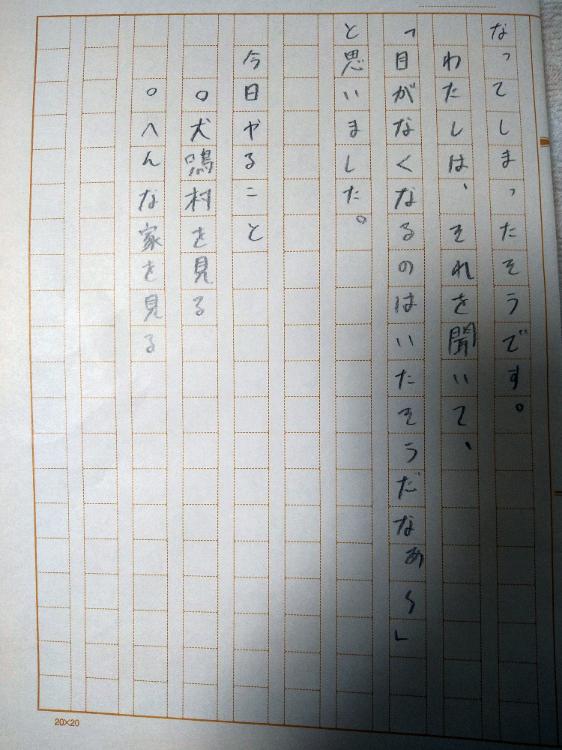 なってしまったそうです。
わたしは、それを聞いて、
「目がなくなるのはいたそうだなぁ〜」
と思いました。
今日やること
○犬鳴村を見る
○へんな家を見る
20×20